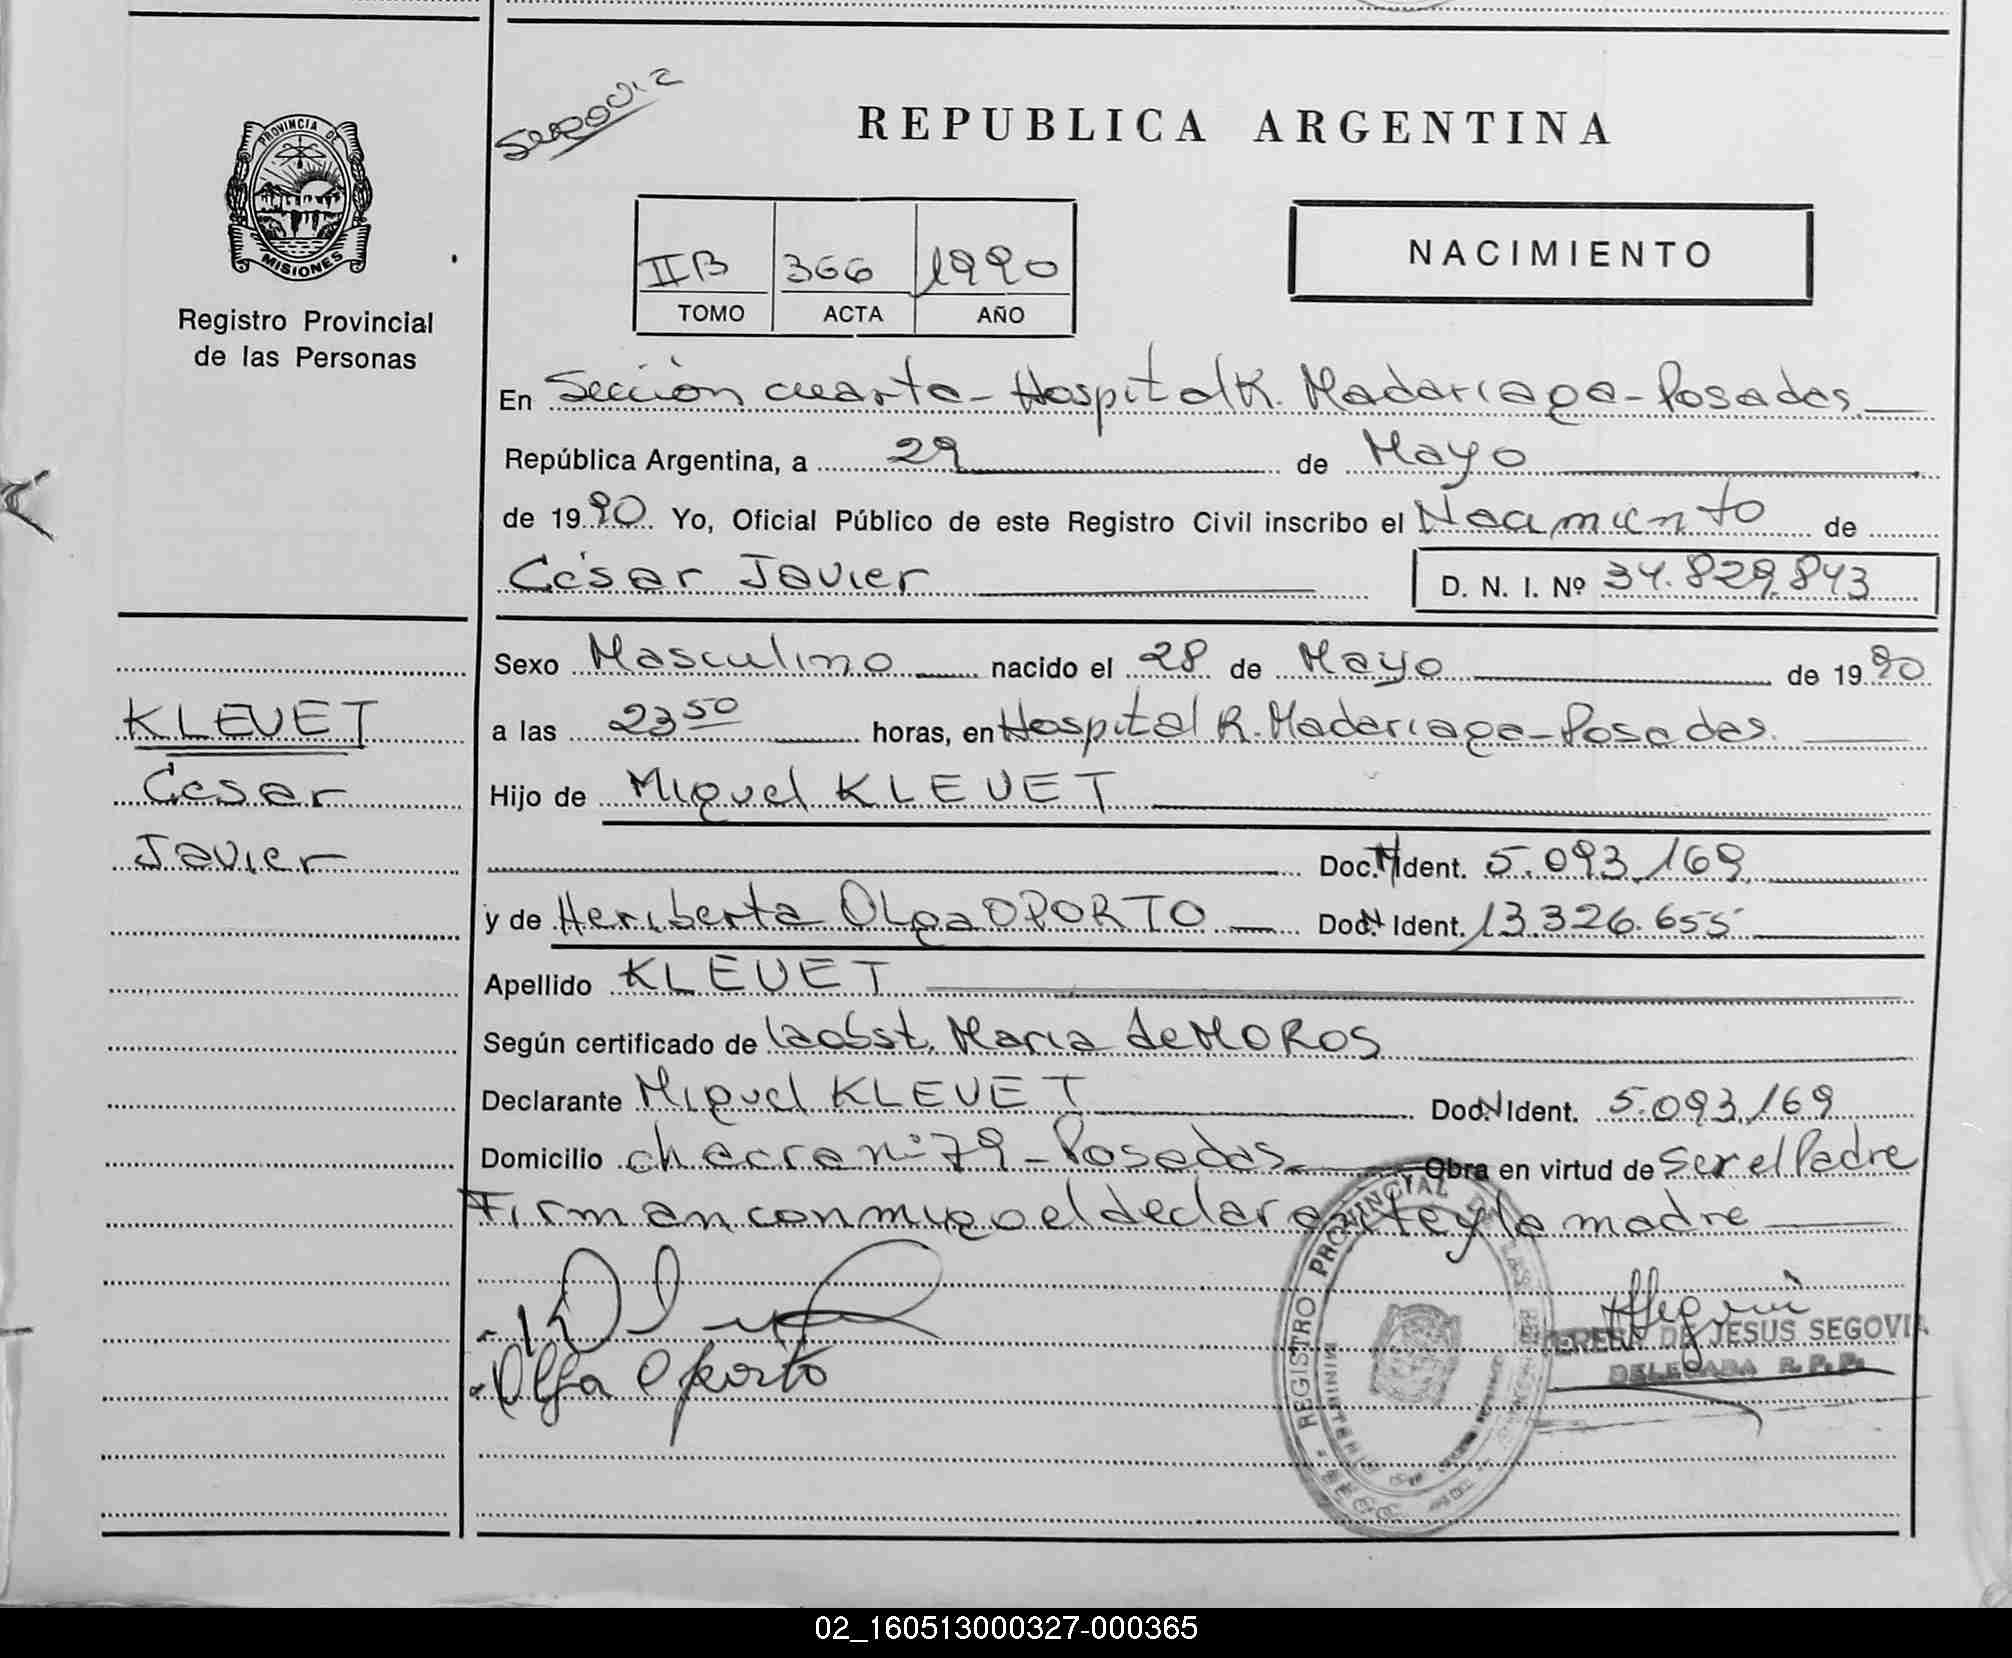 Segovia
REPUBLICA ARGENTINA
PROVINCIA DE
MISIONES
Registro Provincial
de las Personas
IIB 366 1990
TOMO ACTA AÑO
NACIMIENTO
En Sección cuarta - Hospital R. Madariaga - Posadas
República Argentina, a 29 de Mayo
de 1990 Yo, Oficial Público de este Registro Civil inscribo el Nacimiento de
César Javier D. N. I. Nº 34.829.843
KLEUET
Cesar
Javier
Sexo Masculino nacido el 28 de Mayo de 1990
a las 23 50 horas, en Hospital R. Madariaga - Posadas.
Hijo de Miguel KLEUET
Doc. N Ident. 5.093.169
y de Heriberta Olga OPORTO Doc. N Ident. 13.326.655
Apellido KLEUET
Según certificado de la obst. Maria de MOROS
Declarante Miguel KLEUET Doc. N Ident. 5.093.169
Domicilio chacra nº 79 - Posadas Obra en virtud de ser el Padre
Firman conmigo el declarante y la madre
Olga Oporto
REGISTRO PROVINCIAL DE LAS
TERESA DE JESUS SEGOVIA
DELEGADA R. P. P.
02_160513000327-000365